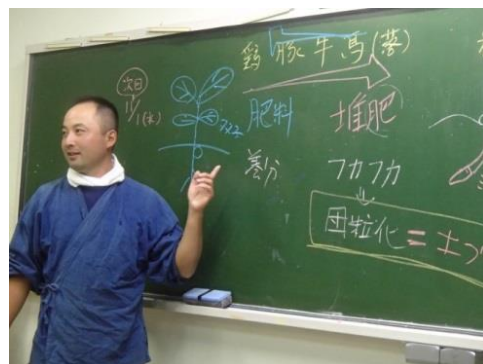 次回
11/1(水)
豚牛馬(
肥料 堆肥
養分 フカフカ
団粒化 = 土